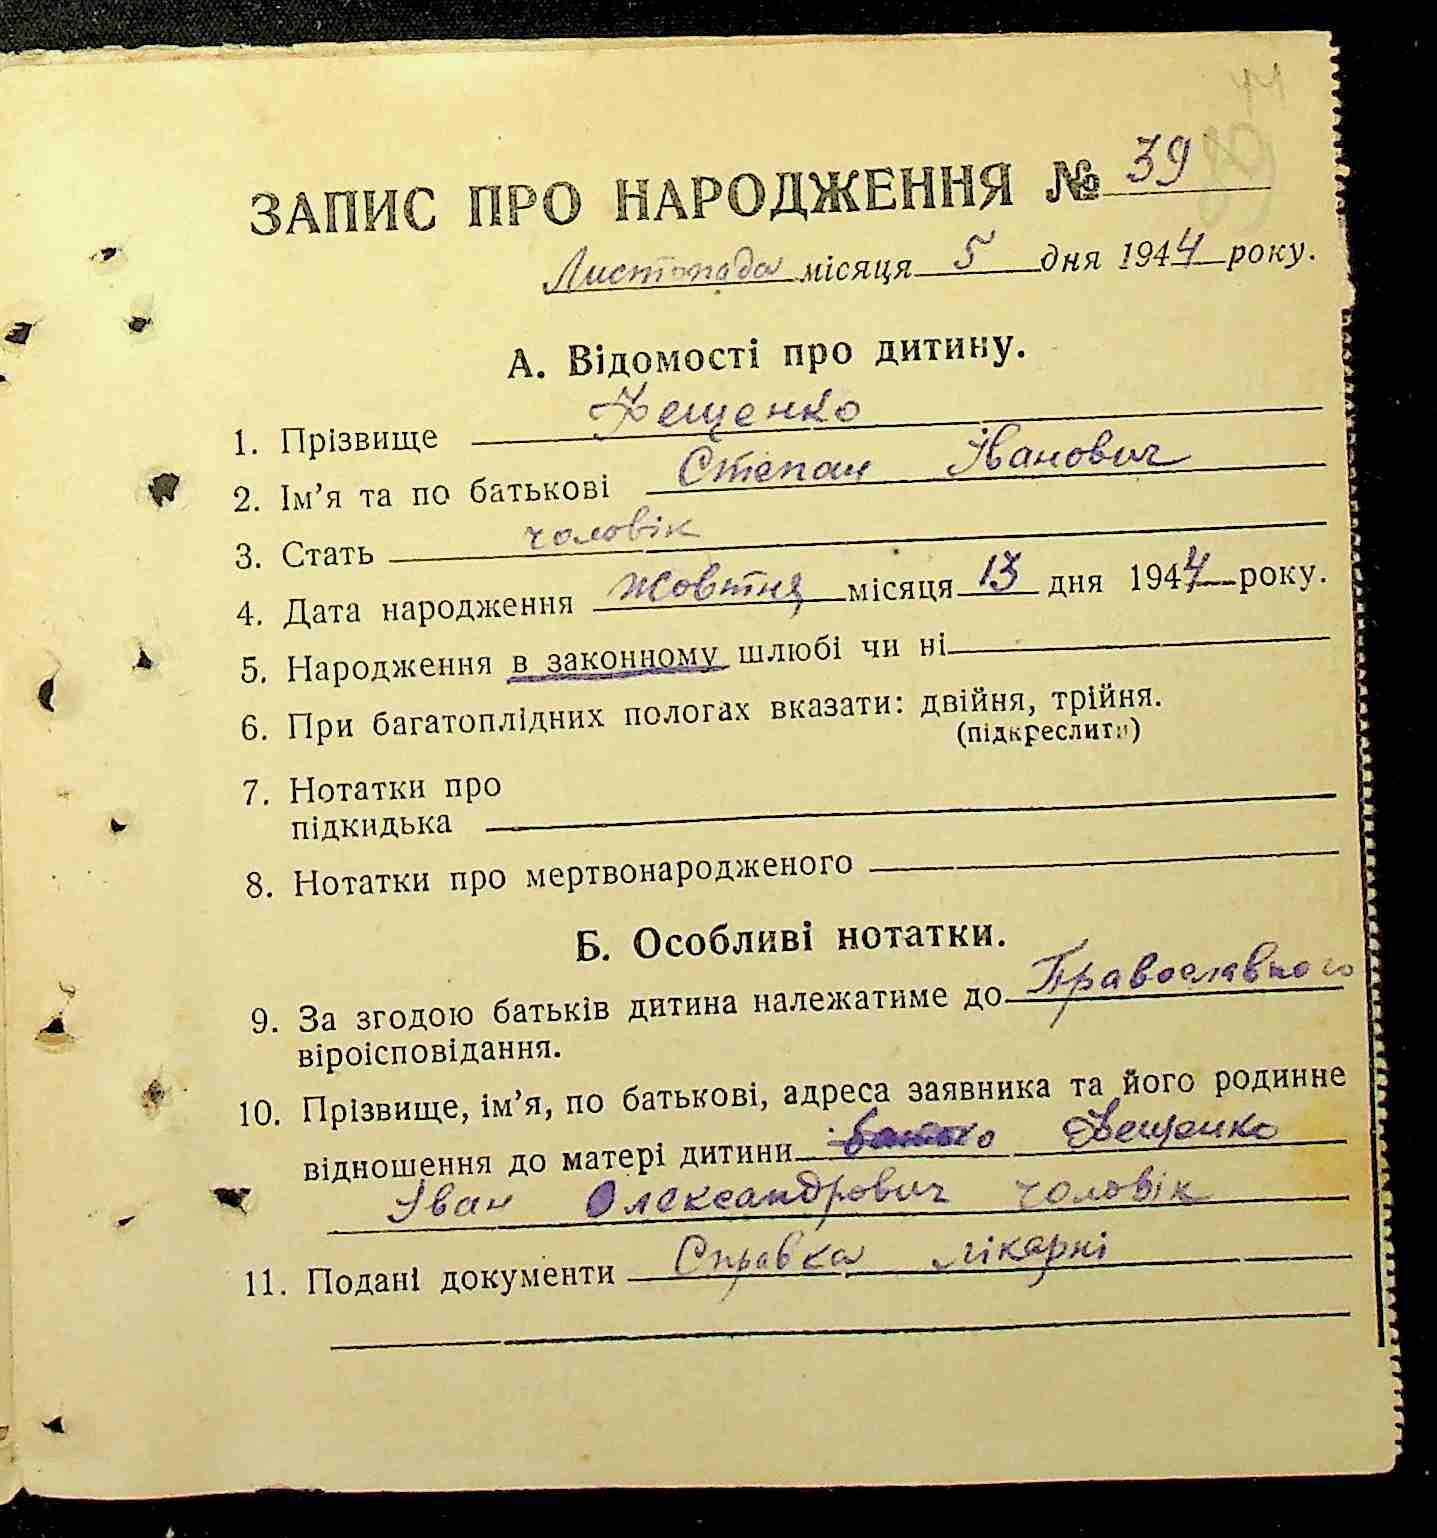 ЗАПИС ПРО НАРОДЖЕННЯ № 39
Листопада місяця 5 дня 1944 року.
А. Відомості про дитину.
1. Прізвище Фещенко
2. Ім'я та по батькові Степан Іванович
3. Стать чоловік
4. Дата народження Жовтня місяця 13 дня 1944 року.
5. Народження в законному шлюбі чи ні
6. При багатоплідних пологах вказати: двійня, трійня.
(підкреслити)
7. Нотатки про
підкидька
8. Нотатки про мертвонародженого
Б. Особливі нотатки.
9. За згодою батьків дитина належатиме до Православного
віроісповідання.
10. Прізвище, ім'я, по батькові, адреса заявника та його родинне
відношення до матері дитини Фещенко
Іван Олександрович чоловік
11. Подані документи Справка лікарні